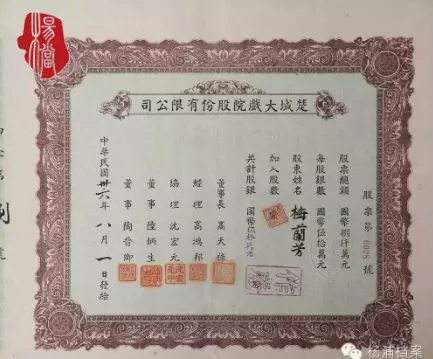 司公限有份股院戲大城楚
股票第 0098 號
股票總額 國幣捌仟萬元
每股銀數 國幣伍拾萬元
股東姓名 梅蘭芳
加入股數
共計股銀 國幣伍拾
董事長 高天
經理 高鴻邦
協理 沈宏元
董事 陸炳生
董事 陶晉卿
中華民國卅六年八月一日發給
杨浦档案